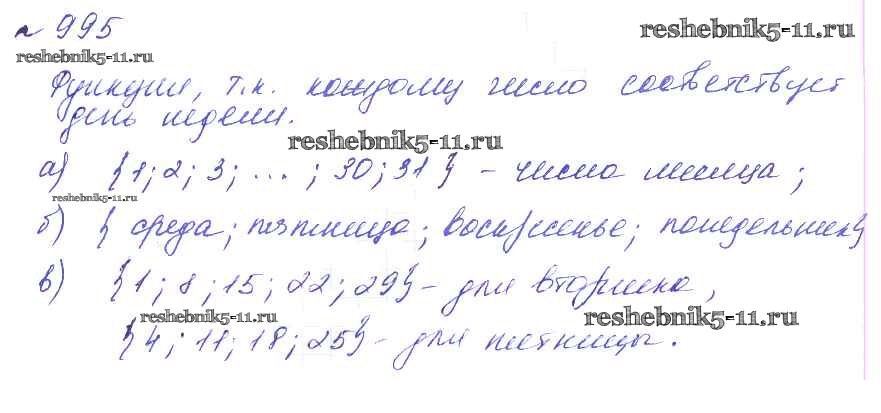 № 995
reshebnik5-11.ru
reshebnik5-11.ru
Функция, т.к. каждому число соответствует
день недели.
reshebnik5-11.ru
а) {1; 2; 3; ... ; 30; 31} - число месяца;
reshebnik5-11.ru
б) { среда; пятница; воскресенье; понедельник}
в) {1; 8; 15; 22; 29} - для вторника,
reshebnik5-11.ru
reshebnik5-11.ru
{4; 11; 18; 25} - для пятницы.